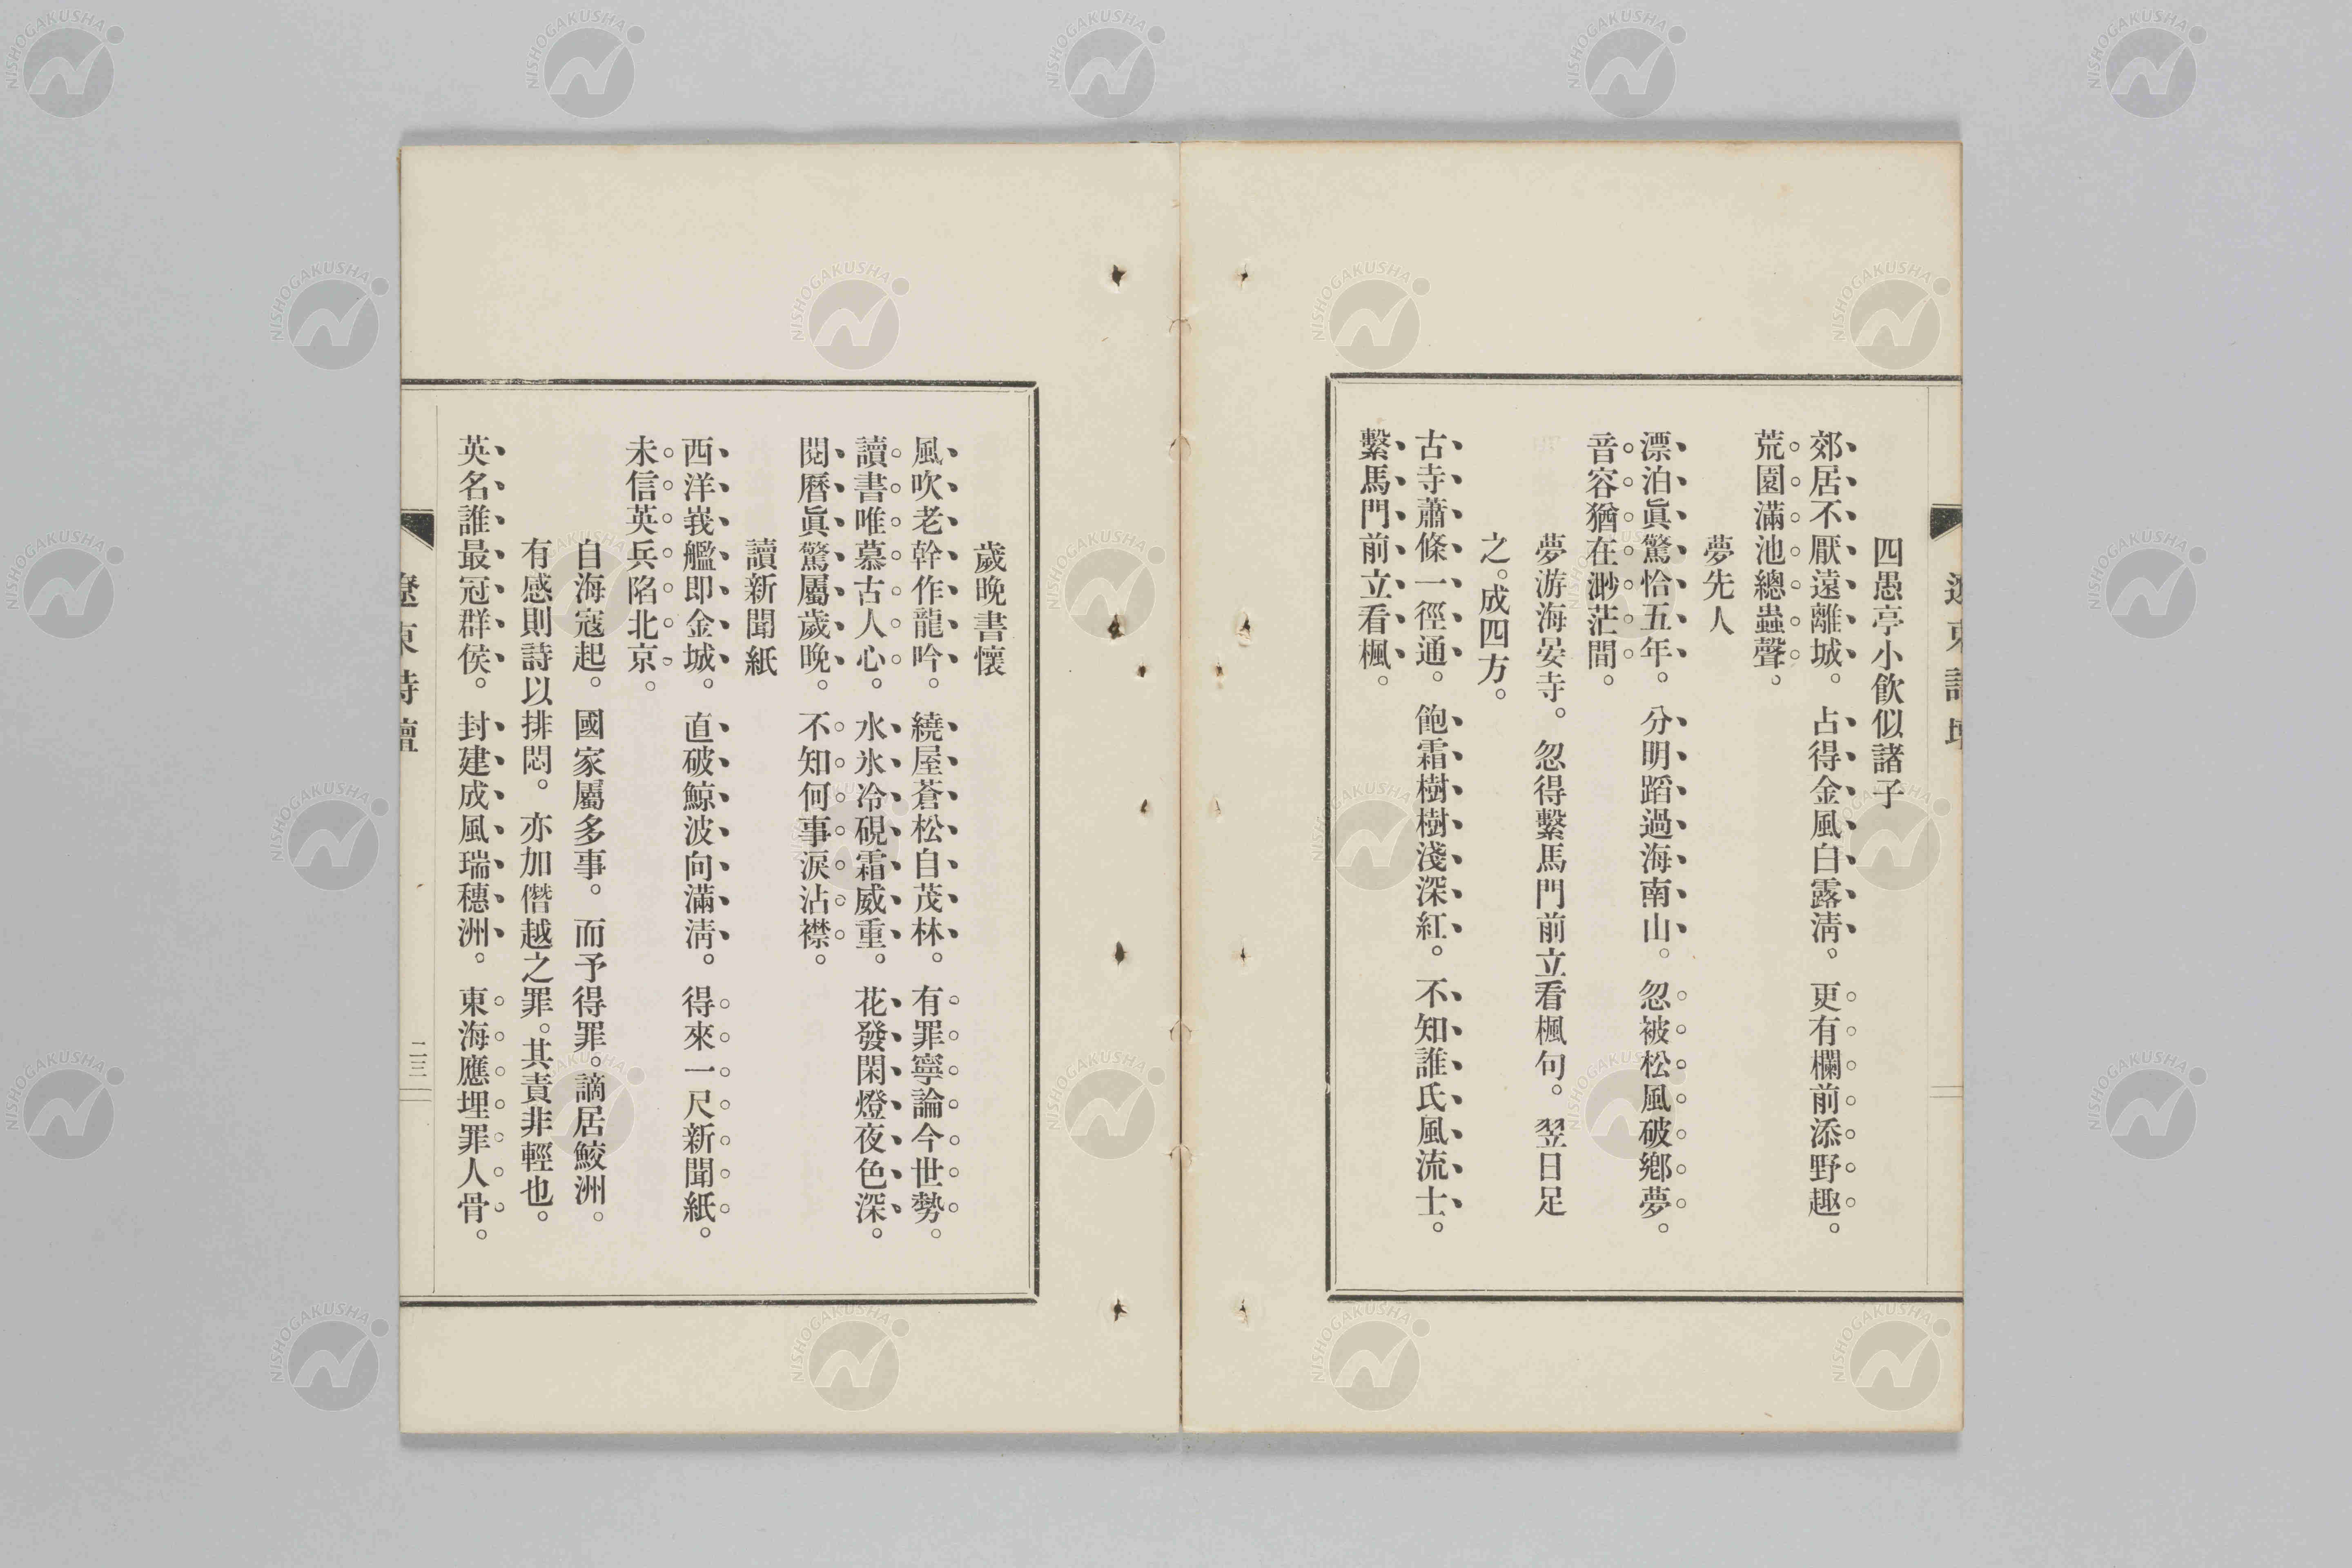 四愚亭小飮似諸子
郊居不厭遠離城。占得金風白露淸。更有欄前添野趣。
荒園滿池總蟲聲。
夢先人
漂泊眞驚恰五年。分明蹈過海南山。忽被松風破鄕夢。
音容猶在渺茫間。
夢游海晏寺。忽得繫馬門前立看楓句。翌日足
之。成四方。
古寺蕭條一徑通。飽霜樹樹淺深紅。不知誰氏風流士。
繫馬門前立看楓。
歲晚書懷
風吹老幹作龍吟。繞屋蒼松自茂林。有罪寧論今世勢。
讀書唯慕古人心。水氷冷硯霜威重。花發閑燈夜色深。
閱曆眞驚屬歲晚。不知何事淚沾襟。
讀新聞紙
西洋峩艦即金城。直破鯨波向滿淸。得來一尺新聞紙。
未信英兵陷北京。
自海寇起。國家屬多事。而予得罪。謫居鮫洲。
有感則詩以排悶。亦加僭越之罪。其責非輕也。
英名誰最冠群侯。封建成風瑞穗洲。東海應埋罪人骨。
遼東詩壇
二三
NISHOGAKUSHA